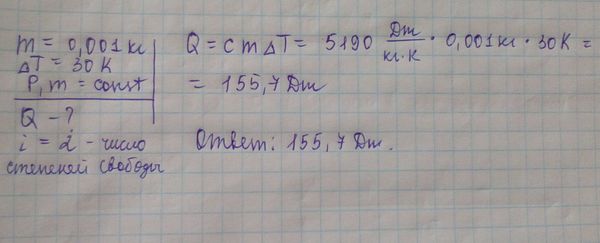 m = 0,001 кг
ΔT = 30 К
P, m = const
Q - ?
i = 2 - число
степеней свободы
Q = c m ΔT = 5190 Дж/кг·К · 0,001 кг · 30 К =
= 155,7 Дж
Ответ: 155,7 Дж.